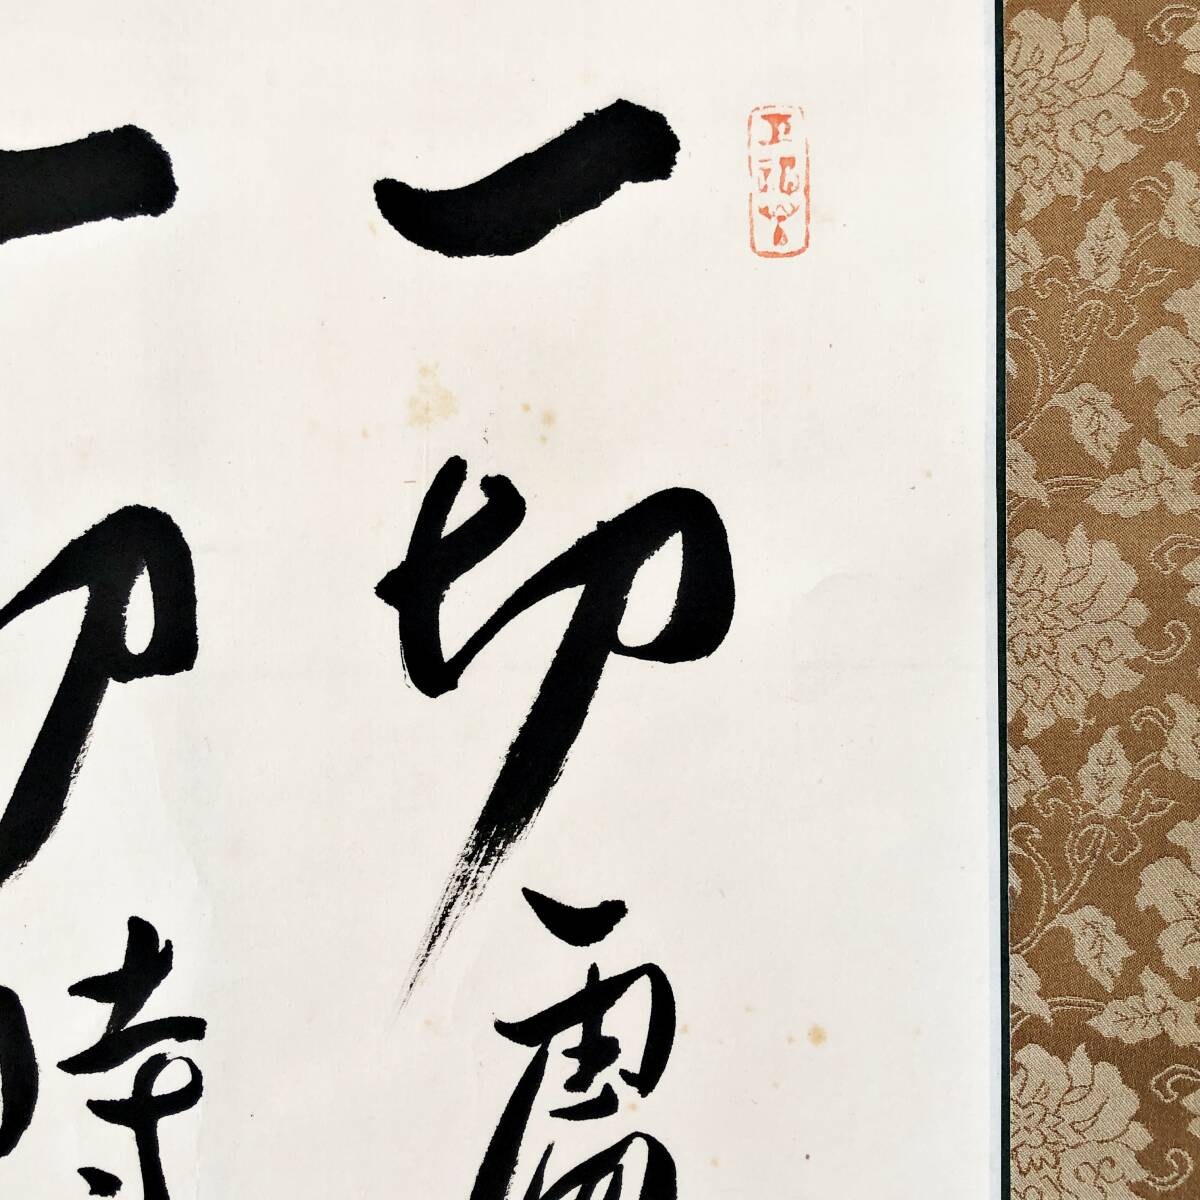 一切處
一切時